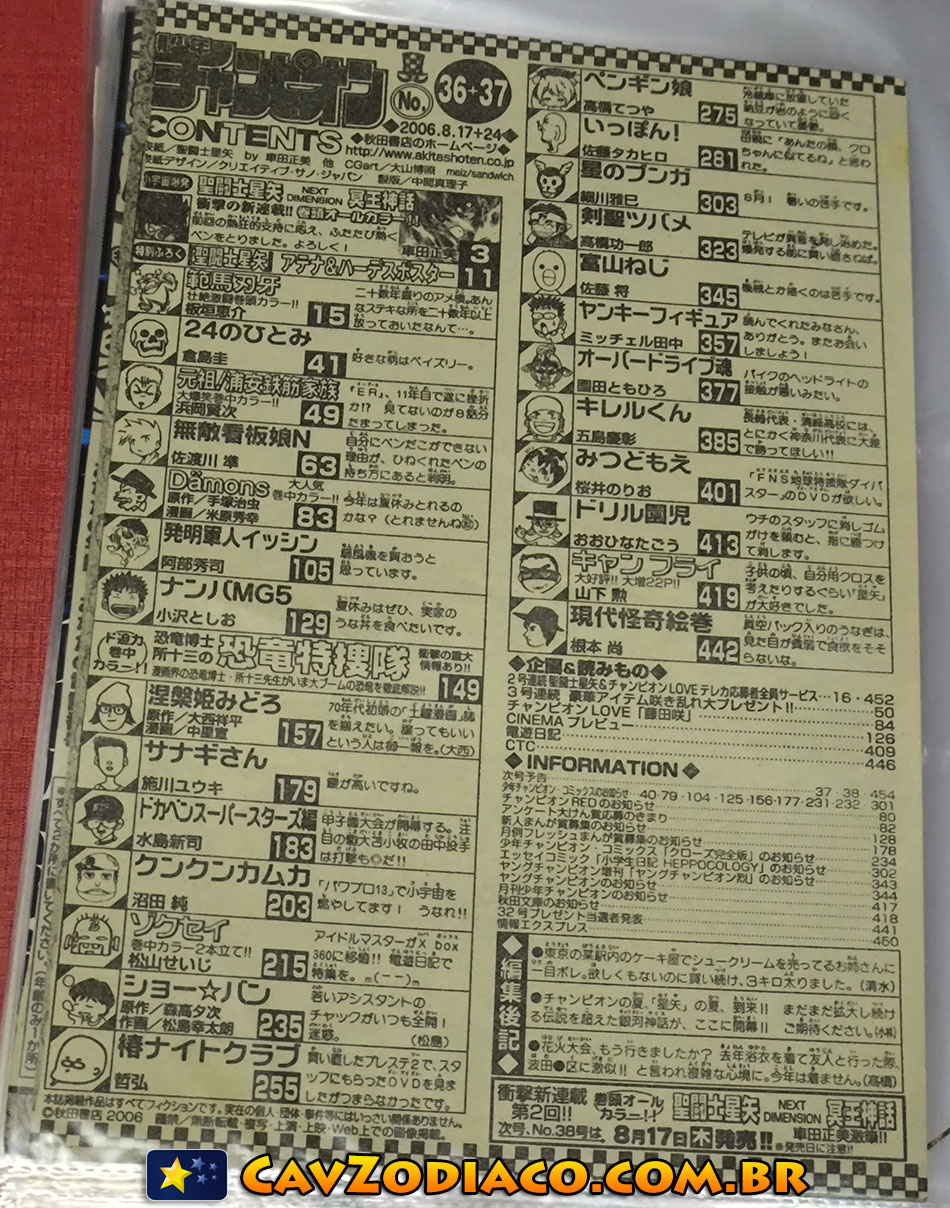 少年チャンピオン
No. 36+37
◆2006.8.17+24◆
CONTENTS
◆秋田書店のホームページ◆
http://www.akitashoten.co.jp
表紙/聖闘士星矢 by 車田正美 他 CGart/大山博照 meiz/sandwich
表紙デザイン/クリエイティブ・サノ・ジャパン 製版/中間真理子
小宇宙爆発 聖闘士星矢 NEXT DIMENSION 冥王神話
衝撃の新連載!! 巻頭オールカラー!!
前回の熱狂的支持に応え、ふたたび熱く
ペンをとりました。よろしく!
車田正美 3
特別ふろく 聖闘士星矢 アテナ&ハーデスポスター 11
範馬刃牙
壮絶激闘巻頭カラー!!
板垣恵介 15
二十数年振りのアメ横。あん
なステキな所を二十数年以上
放っておいたなんて…。
24のひとみ
倉島圭 41
好きな柄はペイズリー。
元祖!浦安鉄筋家族
大爆笑巻中カラー!!
浜岡賢次 49
「ER」、11年目で遂に挫折
か!? 見てないのが8話分
たまってしまった。
無敵看板娘N
佐渡川 準 63
自分にペンだこができない
理由が、ひねくれたペンの
持ち方にあると判明。
Dämons
大人気巻中カラー!!
原作/手塚治虫
漫画/米原秀幸 83
今年は夏休みとれるの
かな?(とれませんね
発明軍人イッシン
阿部秀司 105
扇風機を買おうと
思っています。
ナンバMG5
小沢としお 129
夏休みはぜひ、実家の
うな丼を食べたいです。
ド迫力巻中カラー!!
恐竜博士
所十三の 恐竜特捜隊
衝撃の重大
情報あり!!
漫画界の恐竜博士・所十三先生がいま大ブームの恐竜を徹底解説!! 149
涅槃姫みどろ
原作/大西祥平
漫画/中里宣 157
70年代初頭の「土曜漫画」誌
を揃えたい。譲ってもいい
という人は御一報を。(大西)
サナギさん
施川ユウキ 179
腰が高いですね。
ドカベンスーパースターズ編
水島新司 183
甲子園大会が開幕する。注
目の駒大苫小牧の田中投手
は打撃も◎だ!!
クンクンカムカ
沼田 純 203
「パワプロ13」で小宇宙を
燃やしてます! うなれ!!
ゾクセイ
巻中カラー2本立て!!
松山せいじ 215
アイドルマスターがX box
360に移植!! 電遊日記で
特集を。m(－－)m
ショー☆バン
原作/森高夕次
作画/松島幸太朗 235
若いアシスタントの
チャックがいつも全開!
迷惑。 (松島)
椿ナイトクラブ
哲弘 255
買い直したプレステ2で、スタ
ッフにもらったDVDを見ま
したがつまらなかったです。
本誌掲載作品はすべてフィクションです。実在の個人・団体・事件等にはいっさい関係ありません。
©秋田書店 2006 禁/無断転載・複写・上演・上映・Web上での画像掲載。
ペンギン娘
高橋てつや 275
冷蔵庫に放置していた
納豆が岩のように固く
なっていて憂鬱。
いっぽん!
佐藤タカヒロ 281
母親に「あんたの顔、クロ
ちゃんに似てるね」と言わ
れた。
星のブンガ
細川雅巳 303
8月! 暑いの苦手です。
剣聖ツバメ
高橋功一郎 323
テレビが異音を発し始めた。
爆発する前に買い換さねば。
富山ねじ
佐藤 将 345
機械とか描くのは苦手です。
ヤンキーフィギュア
ミッチェル田中 357
読んでくれたみなさん、
ありがとう。またお会い
しましょう!
オーバードライブ魂
園田ともひろ 377
バイクのヘッドライトの
接触が悪いみたい。
キレルくん
五島慶彰 385
長崎代表・清峰高校には、
とにかく神奈川代表に大差
で勝ってほしい!!
みつどもえ
桜井のりお 401
「FNS地球特捜隊ダイバ
スター」のDVDが欲しい。
ドリル園児
おおひなたごう 413
ウチのスタッフに消しゴム
がけを頼むと、指に唾つけ
て消します。
キャン プライ
大好評!! 大増22P!!
山下 勲 419
子供の頃、自分用クロスを
考えたりするぐらい「星矢」
が大好きでした。
現代怪奇絵巻
根本 尚 442
真空パック入りのうなぎは、
見た目が貧弱で食欲をそそ
らないな。
◆企画&読みもの◆
2号連続 聖闘士星矢&チャンピオンLOVEテレカ応募者全員サービス…16・452
3号連続 豪華アイテム咲き乱れ大プレゼント!!…50
チャンピオンLOVE「藤田咲」…84
CINEMAプレビュー…126
電遊日記…409
CTC…446
◆INFORMATION◆
次号予告…37・38・454
少年チャンピオン・コミックスのお知らせ…40・79・104・125・156・177・231・232・301
チャンピオンREDのお知らせ…80
アンケート大けん賞応募のきまり…82
新人まんが賞募集のお知らせ…128
月例フレッシュまんが賞募集のお知らせ…178
少年チャンピオン・コミックス「クローズ完全版」のお知らせ…234
エッセイコミック「小学生日記 HEPPOCOLOGY」のお知らせ…302
ヤングチャンピオン増刊「ヤングチャンピオン烈」のお知らせ…343
ヤングチャンピオンのお知らせ…344
月刊少年チャンピオンのお知らせ…417
秋田文庫のお知らせ…418
32号プレゼント当選者発表…441
情報エクスプレス…450
◆編集後記◆
●東京の某駅内のケーキ屋でシュークリームを売ってるお姉さんに
一目ボレ。欲しくもないのに買い続け、3キロ太りました。(清水)
●チャンピオンの夏、「星矢」の夏、到来!! まだまだ拡大し続け
る伝説を超えた銀河神話が、ここに開幕!! ご期待ください。(小林)
●花火大会、もう行きましたか? 去年浴衣を着て友人と行った際、
波田●区に激似!! と言われ複雑な心境に。今年は着ません。(高橋)
衝撃新連載
第2回!! 巻頭オール
カラー!! 聖闘士星矢 NEXT DIMENSION 冥王神話
次号、No.38号は、8月17日(木)発売!! 車田正美激筆!!
※発売日に注意!!
CavZodiaco.com.br